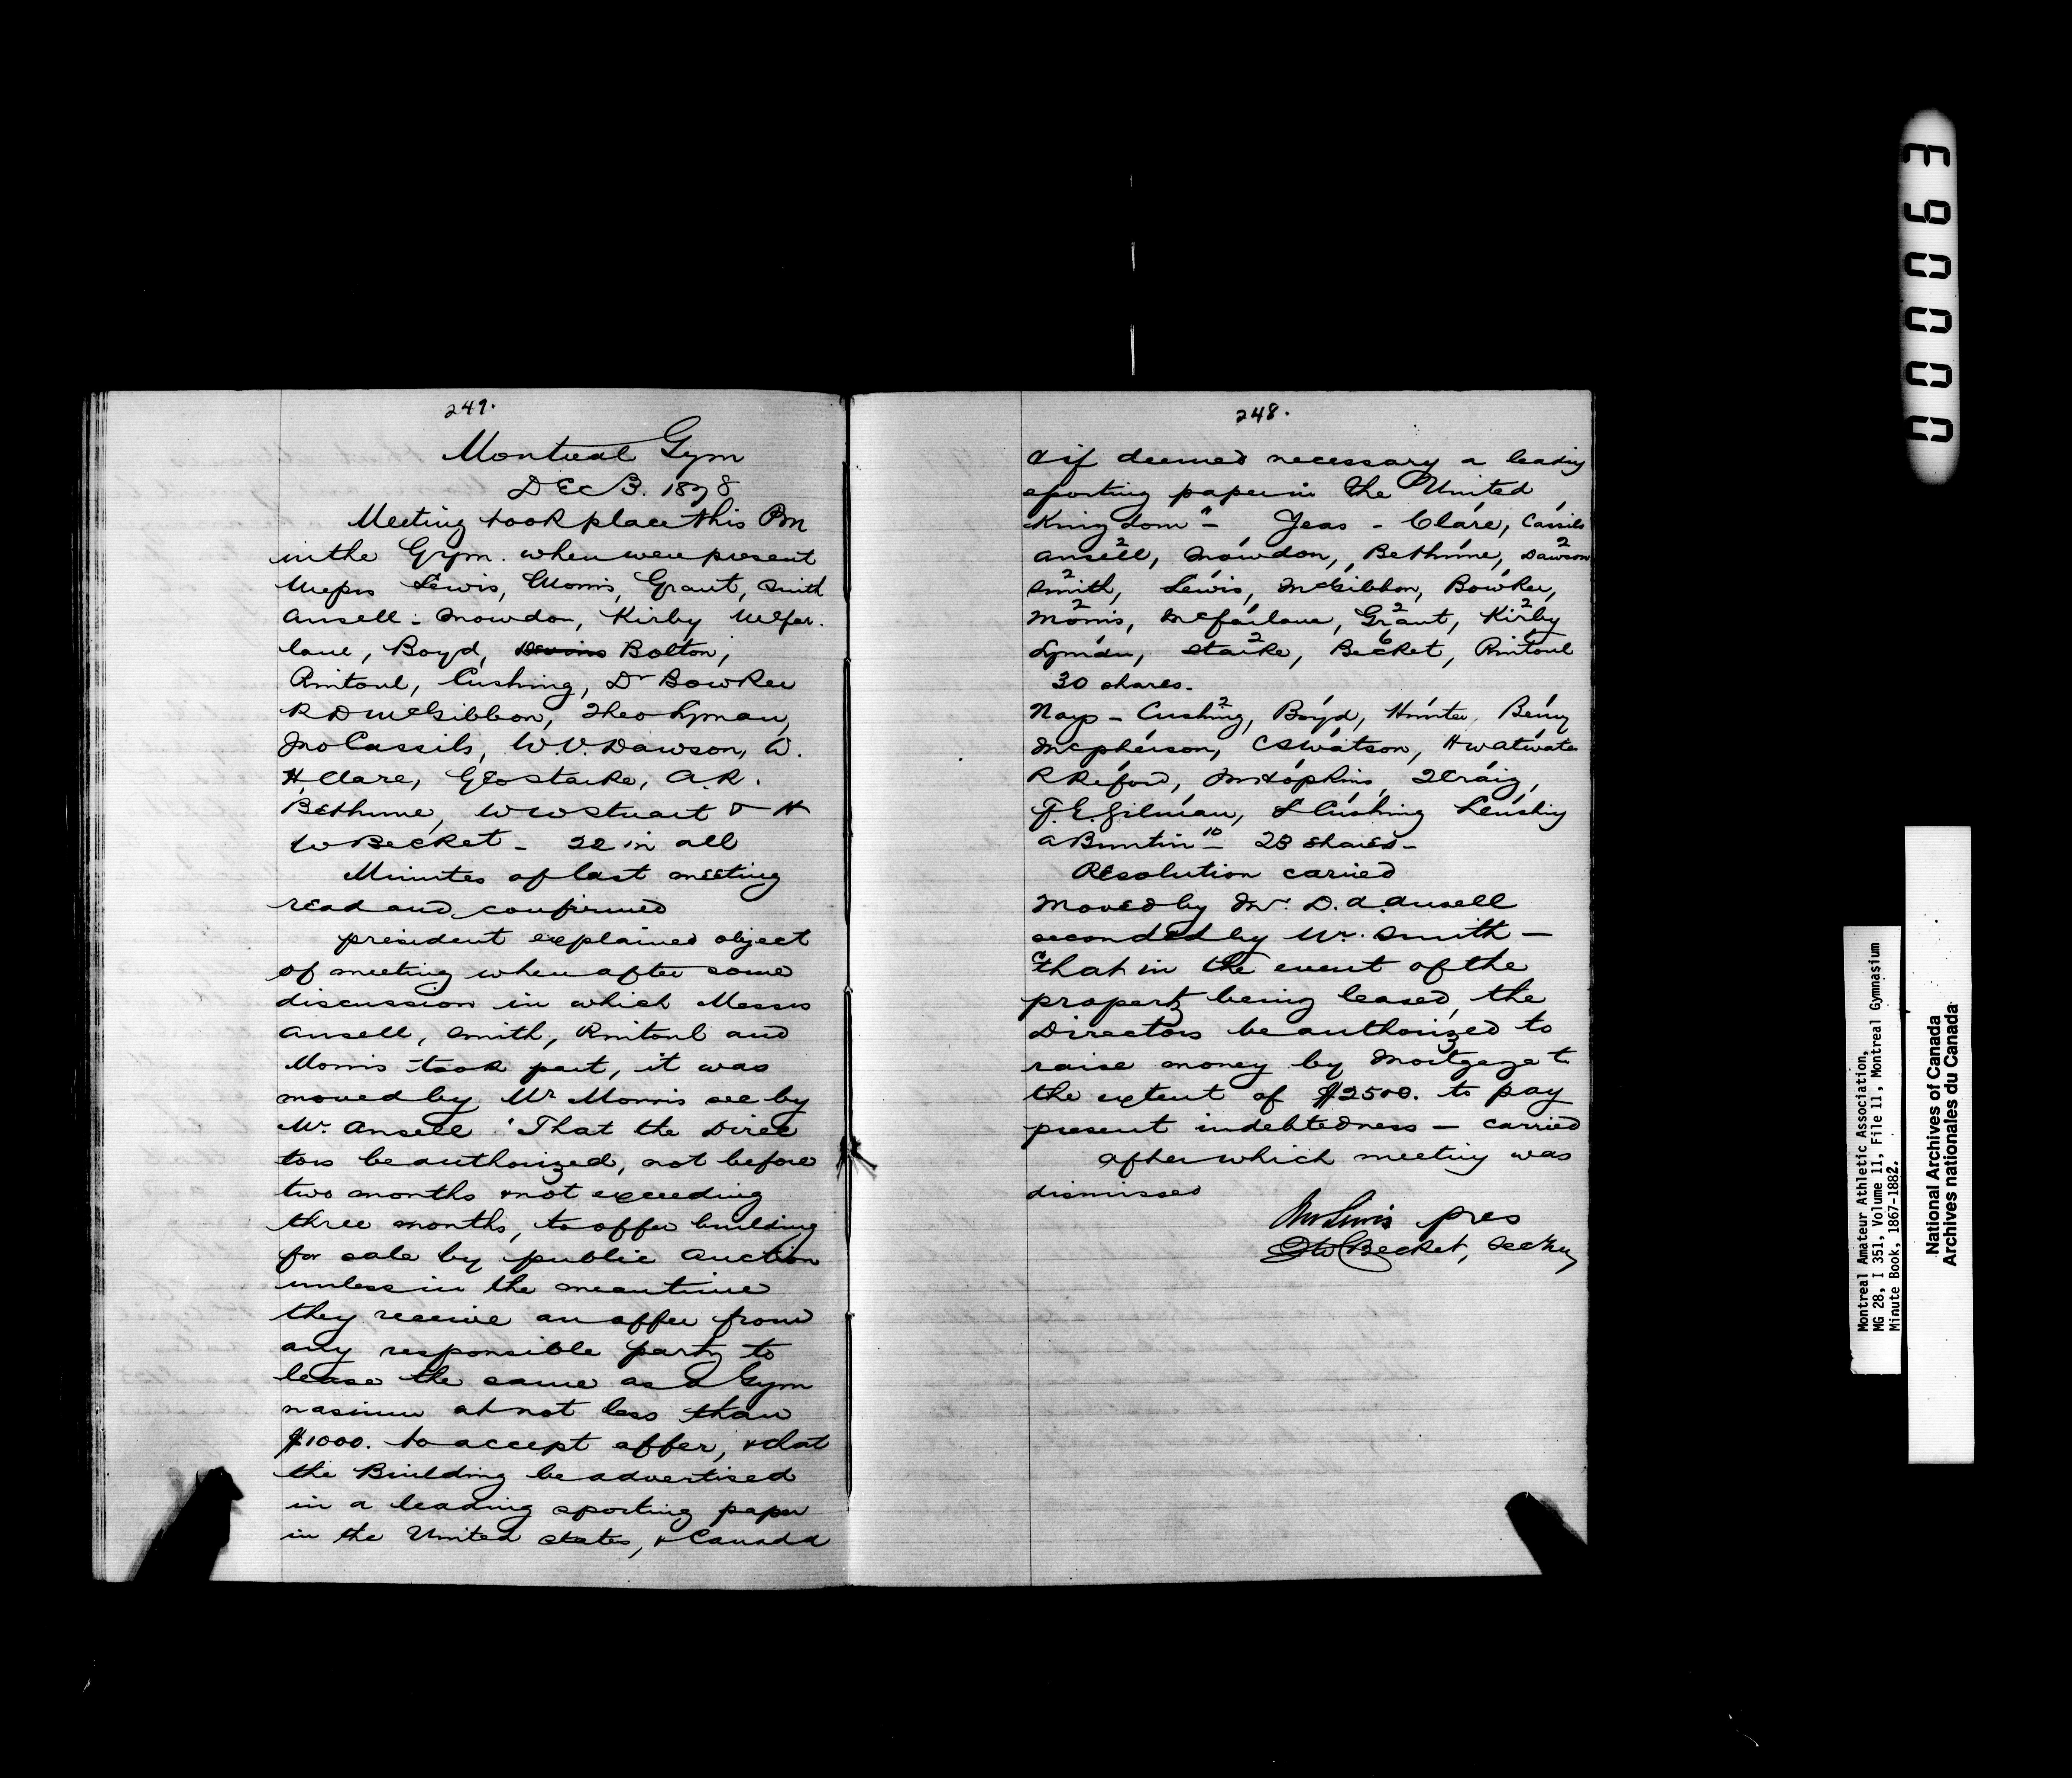 247.
Montreal Gym
DEC 3. 1878
Meeting took place this Pm
in the Gym. when were present
Messrs Lewis, Morris, Grant, Smith
Ansell, Snowdon, Kirby McFar.
lane, Boyd, Bolton,
Rintoul, Cushing, Dr Bowker
R D McGibbon, Theo Lyman,
Jno Cassils, W V. Dawson, W.
H Clare, Geo Starke, A. R.
Bethune, W W Stuart & H
W Becket - 22 in all
Minutes of last meeting
read and confirmed
president explained object
of meeting when after some
discussion in which Messrs
Ansell, Smith, Rintoul and
Morris took part, it was
moved by Mr Morris sec by
Mr. Ansell "That the Direc
tors be authorized, not before
two months & not exceeding
three months, to offer building
for sale by public Auction
unless in the meantime
they receive an offer from
any responsible party to
lease the same as a Gym
nasium at not less than
$1000. to accept offer, & that
the Building be advertised
in a leading sporting paper
in the United States, & Canada
248.
& if deemed necessary a leading
sporting paper in the United
Kingdom" - Yeas - Clare, Cassils
Ansell, Snowdon, Bethune, Dawson
Smith, Lewis, McGibbon, Bowker,
Morris, McFarlane, Grant, Kirby
Lyman, Starke, Becket, Rintoul
30 shares.
Nays - Cushing, Boyd, Hunter, Benny
McPherson, C S Watson, H W Atwater
R Reford, Jno Hopkins, Craig,
F. E. Gilman, L Cushing L Cushing
A Buntin - 28 shares -
Resolution carried
Moved by Mr. D. A. Ansell
seconded by Mr. Smith -
"that in the event of the
property being leased, the
Directors be authorized to
raise money by Mortgage to
the extent of $2500. to pay
present indebtedness - carried
after which meeting was
dismissed
Lewis pres
H W Becket, Sec Try
00009 3
Montreal Amateur Athletic Association,
MG 28, I 351, Volume 11, File 11, Montreal Gymnasium
Minute Book, 1867-1882.
National Archives of Canada
Archives nationales du Canada